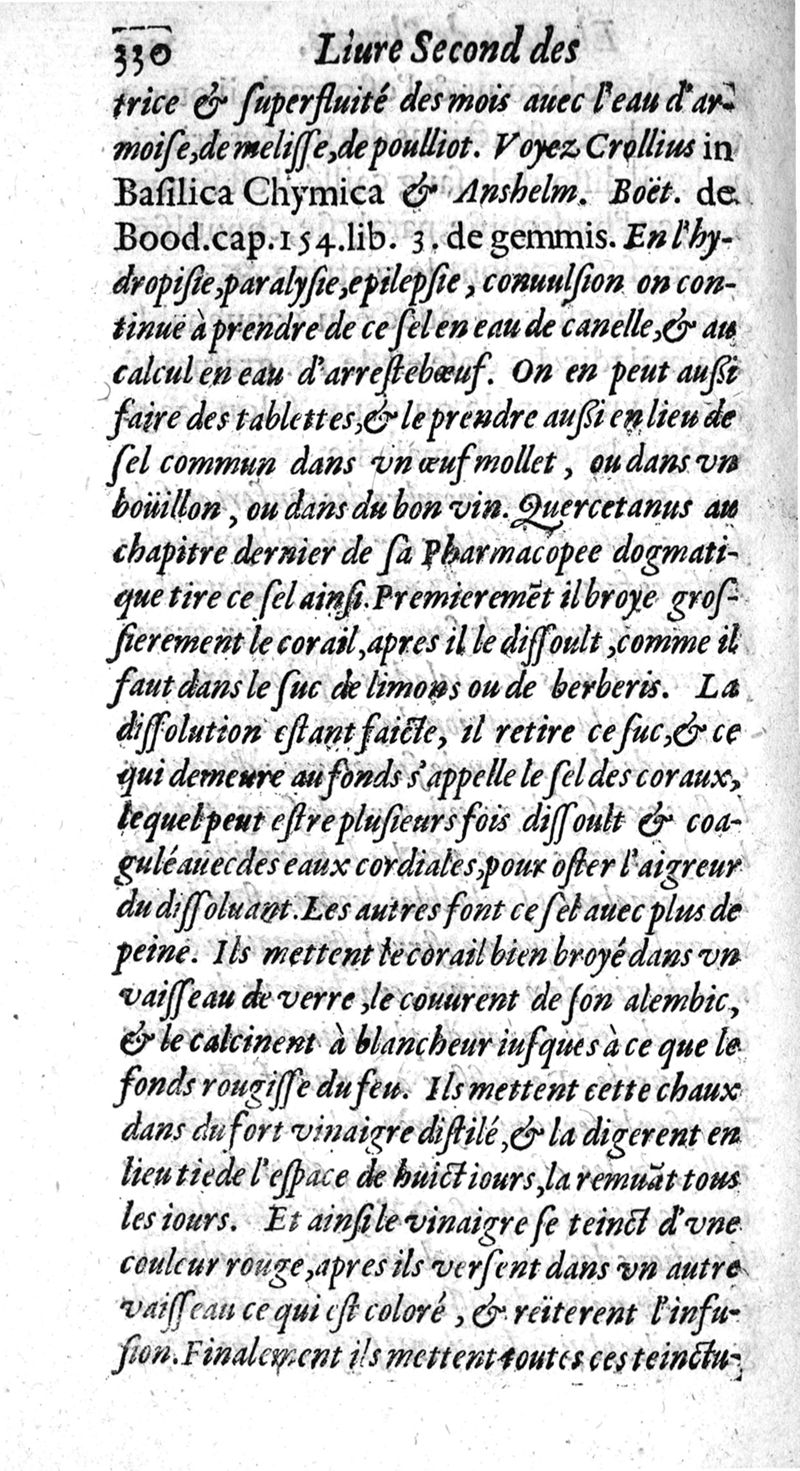 330 Liure Second des
trice & ſuperfluité des mois auec l'eau d'ar-
moiſe, de meliſſe, de poulliot. Voyez Crollius in
Baſilica Chymica & Anshelm. Boët. de
Bood. cap. 154. lib. 3. de gemmis. En l'hy-
dropiſie, paralyſie, epilepſie, conuulſion on con-
tinuë à prendre de ce ſel en eau de canelle, & au
calcul en eau d'arreſtebœuf. On en peut auſſi
faire des tablettes, & le prendre auſſi en lieu de
ſel commun dans vn œuf mollet, ou dans vn
boüillon, ou dans du bon vin. Quercetanus au
chapitre dernier de ſa Pharmacopee dogmati-
que tire ce ſel ainſi. Premieremẽt il broye groſ-
ſierement le corail, apres il le diſſoult, comme il
faut dans le ſuc de limons ou de berberis. La
diſſolution eſtant faicte, il retire ce ſuc, & ce
qui demeure au fonds s'appelle le ſel des coraux,
lequel peut eſtre pluſieurs fois diſſoult & coa-
gulé auec des eaux cordiales, pour oſter l'aigreur
du diſſoluant. Les autres font ce ſel auec plus de
peine. Ils mettent le corail bien broyé dans vn
vaiſſeau de verre, le couurent de ſon alembic,
& le calcinent à blancheur iuſques à ce que le
fonds rougiſſe du feu. Ils mettent cette chaux
dans du fort vinaigre diſtilé, & la digerent en
lieu tiede l'eſpace de huict iours, la remuãt tous
les iours. Et ainſi le vinaigre ſe teinct d'vne
couleur rouge, apres ils verſent dans vn autre
vaiſſeau ce qui eſt coloré, & reïterent l'infu-
ſion. Finalement ils mettent toutes ces teinctu-